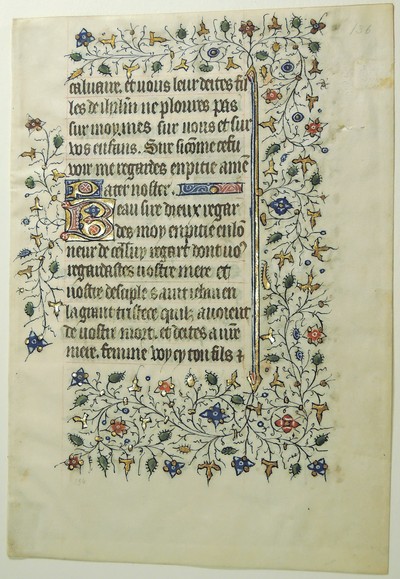 caluaire. et uous leur deites fil
les de ihrlm ne ploures pas
sur moy, mes sur uous et sur
vos enfans. Sire sicõme ce fu
voir me regardes en pitie amẽ
Pater noster.
Beau sire dieux regar
des moy en pitie en lõ
neur de celluy regart dont uoꝰ
regardastes uostre mere et
uostre desciple saint iehan en
la grant tristece quilz auoient
de uostre mort. et deites a ure
mere. femme voy cy ton fils ⁊
136